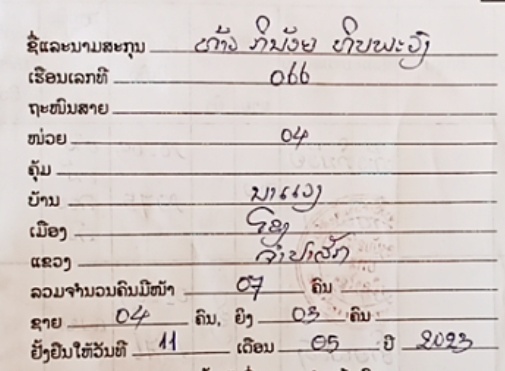 ຊື່ແລະນາມສະກຸນ ທ້າວ
ເຮືອນເລກທີ 066
ຖະໜົນສາຍ
ໜ່ວຍ 04
ຄຸ້ມ
ບ້ານ
ເມືອງ ໂຂງ
ແຂວງ ຈຳປາສັກ
ລວມຈຳນວນຄົນມີໜ້າ 07 ຄົນ
ຊາຍ 04 ຄົນ, ຍິງ 03 ຄົນ
ຢັ້ງຢືນໃຫ້ວັນທີ 11 ເດືອນ 05 ປີ 2023